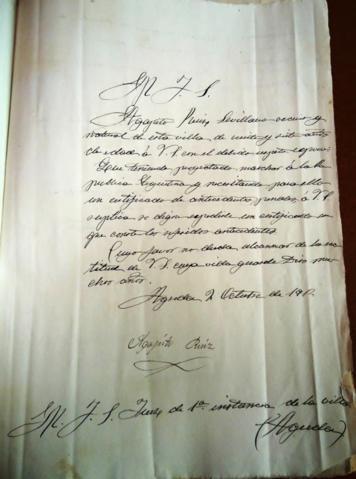 M. I. S.
Agapito Ruiz Sevillano vecino y
natural de esta villa de veinte y siete años
de edad á V.S con el debido respeto expone:
Que teniendo proyectado marchar á la Re
publica Argentina y necesitando para ello
un certificado de antecedentes penales, á V.S
suplica se digne expedirle un certificado en
que conste los referidos antecedentes
Cuyo favor no duda alcanzar de la rec
titud de V.S. cuya vida guarde Dios mu
chos años.
Agreda 2 Octubre de
Agapito Ruiz
M. I. S. Juez de 1ª instancia de la villa
(Agreda)